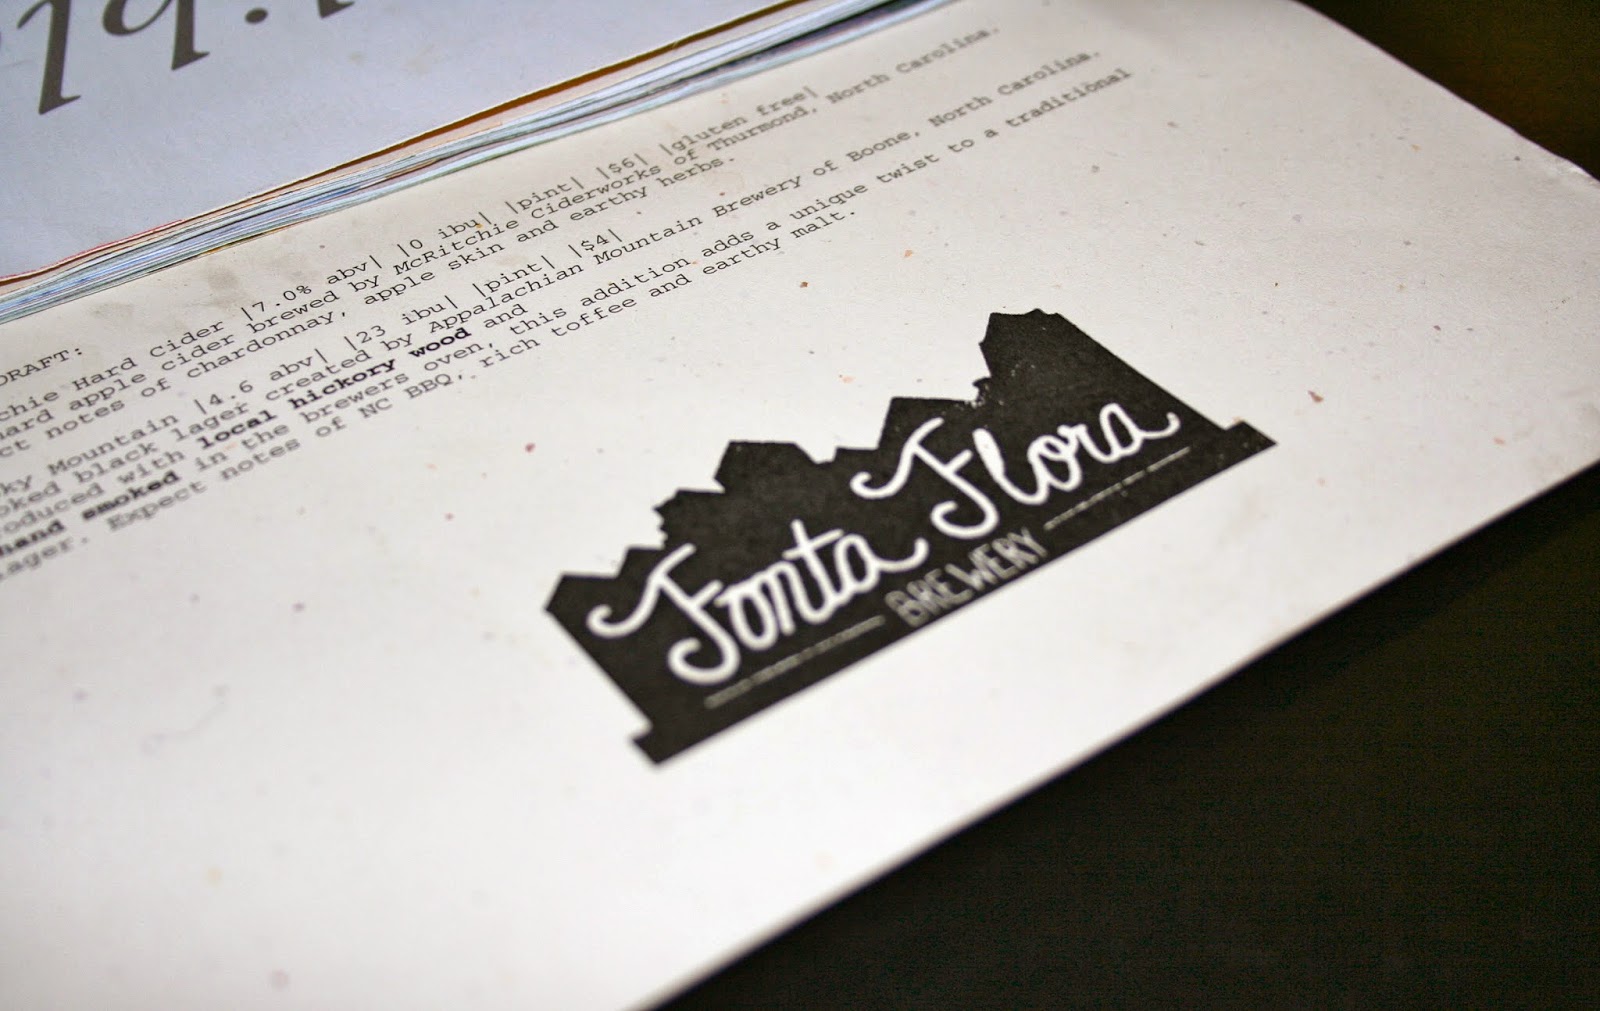 DRAFT:
chie Hard Cider |7.0% abv| |0 ibu| |pint| |$6| |gluten free|
hard apple cider brewed by McRitchie Ciderworks of Thurmond, North Carolina.
ct notes of chardonnay, apple skin and earthy herbs.
ky Mountain |4.6 abv| |23 ibu| |pint| |$4|
oked black lager created by Appalachian Mountain Brewery of Boone, North Carolina.
roduced with local hickory wood and
hand smoked in the brewers oven, this addition adds a unique twist to a traditional
lager. Expect notes of NC BBQ, rich toffee and earthy malt.
Fonta Flora
BREWERY